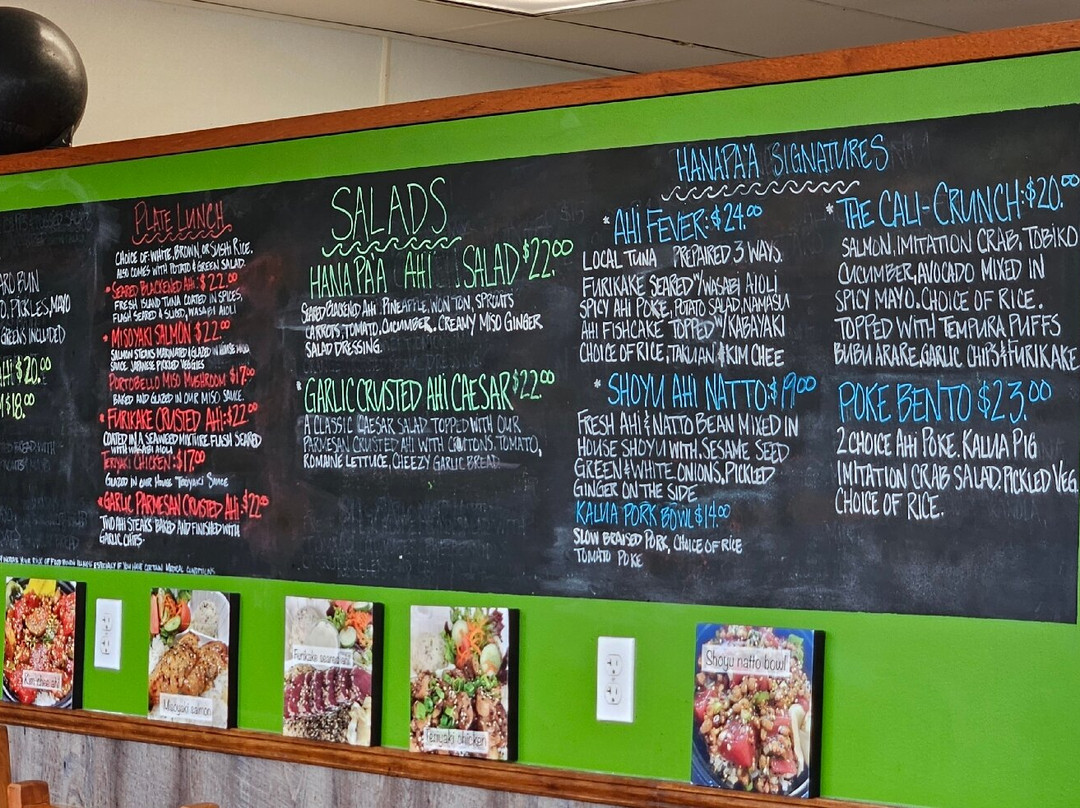 ARU BUN
O, PICKLES, MAYO
GREENS INCLUDED
AHI $20.00
$18.00
PLATE LUNCH
CHOICE OF WHITE, BROWN, OR SUSHI RICE.
ALSO COMES WITH POTATO & GREEN SALAD.
* SEARED BLACKENED AHI: $22.00
FRESH ISLAND TUNA COATED IN SPICES,
FLASH SEARED & SLICED, WASABI AIOLI
* MISOYAKI SALMON $22.00
SALMON STEAKS MARINATED & GLAZED IN HOUSE MISO
SAUCE. JAPANESE PICKLED VEGGIES
PORTOBELLO MISO MUSHROOM $17.00
BAKED AND GLAZED IN OUR MISO SAUCE.
* FURIKAKE CRUSTED AHI: $22.00
COATED IN A SEAWEED MIXTURE FLASH SEARED
WITH WASABI AIOLI
TERIYAKI CHICKEN: $17.00
GLAZED IN OUR HOUSE TERIYAKI SAUCE
* GARLIC PARMESAN CRUSTED AHI: $22.00
TWO AHI STEAKS BAKED AND FINISHED WITH
GARLIC CHIPS.
SALADS
HANAPA'A AHI SALAD $22.00
SEARED BLACKENED AHI. PINEAPPLE, WON TON, SPROUTS
CARROTS, TOMATO, CUCUMBER. CREAMY MISO GINGER
SALAD DRESSING.
* GARLIC CRUSTED AHI CAESAR $22.00
A CLASSIC CAESAR SALAD TOPPED WITH OUR
PARMESAN CRUSTED AHI WITH CROUTONS, TOMATO,
ROMAINE LETTUCE, CHEEZY GARLIC BREAD
HANAPA'A SIGNATURES
* AHI FEVER: $24.00
LOCAL TUNA PREPARED 3 WAYS.
FURIKAKE SEARED W/ WASABI AIOLI
SPICY AHI POKE, POTATO SALAD, NAMASU
AHI FISHCAKE TOPPED W/ KABAYAKI
CHOICE OF RICE, TAKUAN & KIM CHEE
* SHOYU AHI NATTO: $19.00
FRESH AHI & NATTO BEAN MIXED IN
HOUSE SHOYU WITH SESAME SEED
GREEN & WHITE ONIONS. PICKLED
GINGER ON THE SIDE
KALUA PORK BOWL $14.00
SLOW BRAISED PORK, CHOICE OF RICE
TOMATO POKE
* THE CALI-CRUNCH: $20.00
SALMON, IMITATION CRAB, TOBIKO
CUCUMBER, AVOCADO MIXED IN
SPICY MAYO. CHOICE OF RICE.
TOPPED WITH TEMPURA PUFFS
BUBU ARARE, GARLIC CHIPS & FURIKAKE
POKE BENTO $23.00
2 CHOICE AHI POKE. KALUA PIG
IMITATION CRAB SALAD, PICKLED VEG.
CHOICE OF RICE.
YOUR RISK OF FOOD BORN ILLNESS ESPECIALLY IF YOU HAVE CERTAIN MEDICAL CONDITIONS.
Kim chee ahi
Misoyaki salmon
Furikake seared ahi
Teriyaki chicken
Shoyu natto bowl